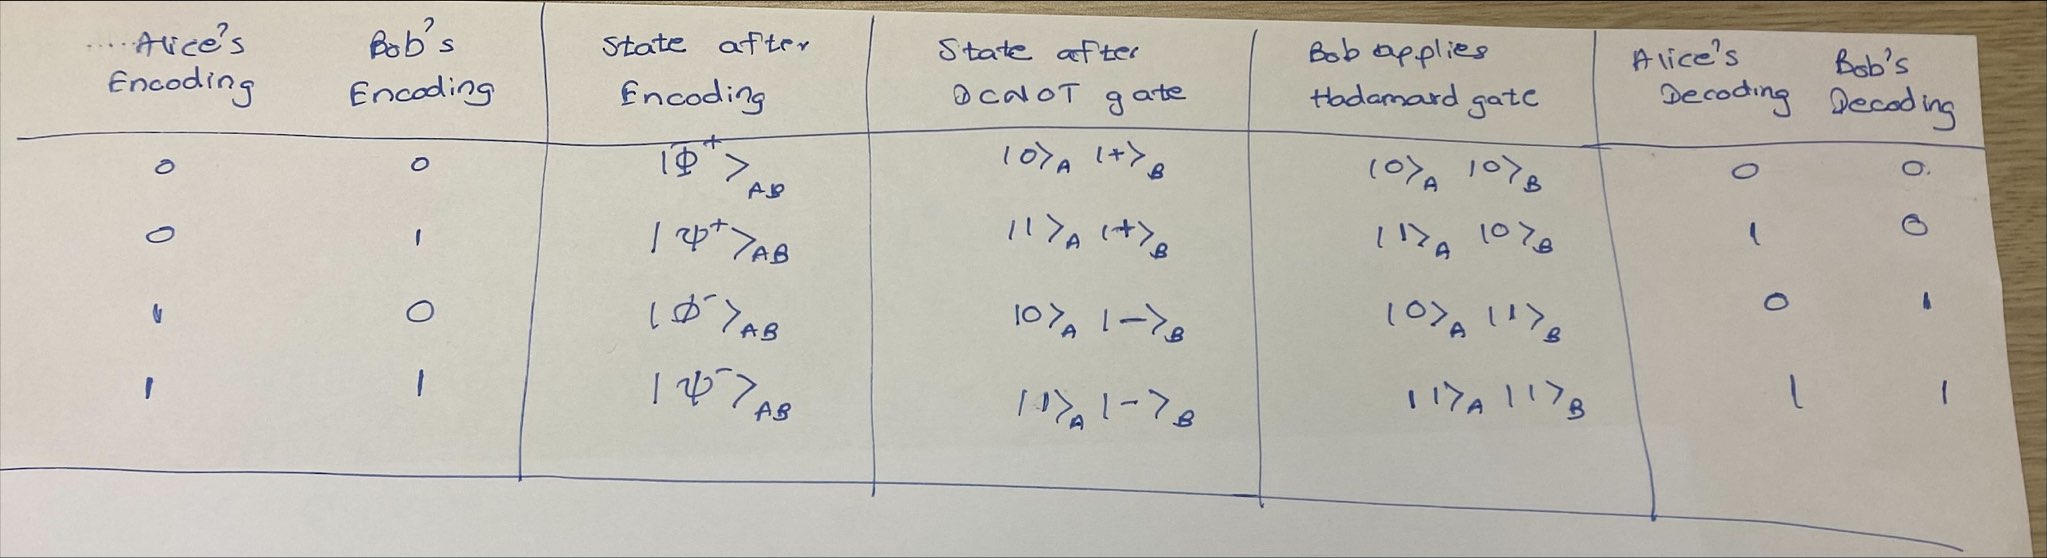 Alice's Encoding | Bob's Encoding | State after Encoding | State after DCNOT gate | Bob applies Hadamard gate | Alice's Decoding | Bob's Decoding
0 | 0 | |Φ⁺>_AB | |0>_A |+>_B | |0>_A |0>_B | 0 | 0
0 | 1 | |Ψ⁺>_AB | |1>_A |+>_B | |1>_A |0>_B | 1 | 0
1 | 0 | |Φ⁻>_AB | |0>_A |−>_B | |0>_A |1>_B | 0 | 1
1 | 1 | |Ψ⁻>_AB | |1>_A |−>_B | |1>_A |1>_B | 1 | 1